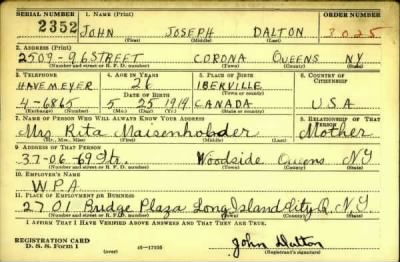 SERIAL NUMBER 1. NAME (Print) ORDER NUMBER
2352 JOHN JOSEPH DALTON 3025
(First) (Middle) (Last)
2. ADDRESS (Print)
2509-96 STREET CORONA QUEENS NY
(Number and street or R. F. D. number) (Town) (County) (State)
3. TELEPHONE 4. AGE IN YEARS 5. PLACE OF BIRTH 6. COUNTRY OF CITIZENSHIP
HAVEMEYER 26 IBERVILLE
DATE OF BIRTH (Town or county)
4-6865 5 25 1914 CANADA U.S.A
(Exchange) (No.) (Mo.) (Day) (Yr.) (State or country)
7. NAME OF PERSON WHO WILL ALWAYS KNOW YOUR ADDRESS 8. RELATIONSHIP OF THAT PERSON
Mrs. Rita Maisenholder Mother
(Mr., Mrs., Miss) (First) (Middle) (Last)
9. ADDRESS OF THAT PERSON
37-06-69 St. Woodside Queens N.Y
(Number and street or R. F. D. number) (Town) (County) (State)
10. EMPLOYER'S NAME
WPA
11. PLACE OF EMPLOYMENT OR BUSINESS
2701 Bridge Plaza Long Island City Q. N.Y
(Number and street or R. F. D. number) (Town) (County) (State)
I AFFIRM THAT I HAVE VERIFIED ABOVE ANSWERS AND THAT THEY ARE TRUE.
REGISTRATION CARD
D. S. S. Form 1 16-17105 John Dalton
(over) (Registrant's signature)